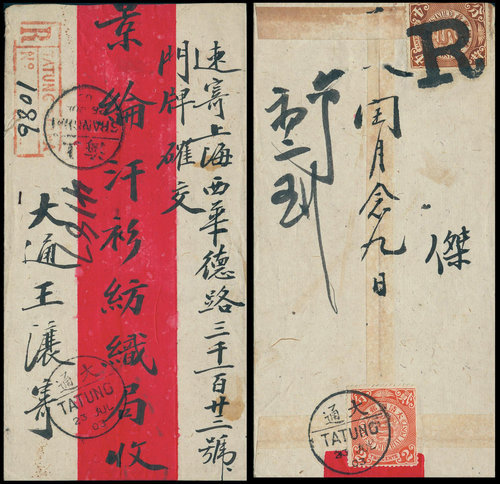 速寄上海西華德路三千一百廿三號
門牌確交
景綸汗衫紡織局收
大通王瀼寄
R
TATUNG
No
9801
SHANGHAI
大通
TATUNG
23 JUL
03
R
閏月念九日
傑
大通
TATUNG
23 JUL
03